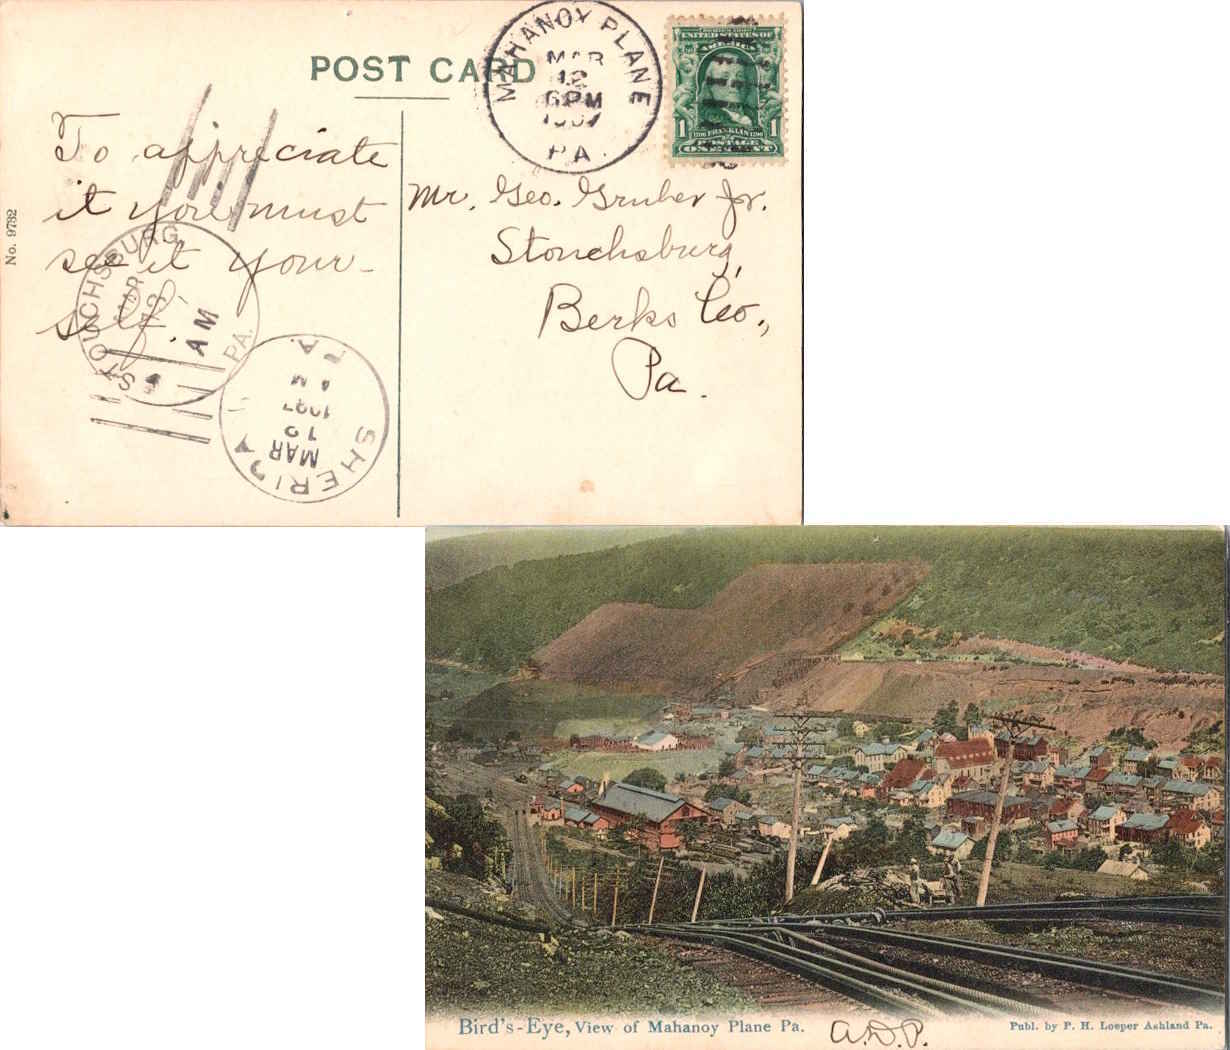 POST CARD
MAHANOY PLANE
MAR
12
6PM
1907
PA.
UNITED STATES OF
AMERICA
1 1706 FRANKLIN 1790 1
POSTAGE
ONE CENT
To appreciate
it you must
see it your-
self.
No. 9782
Mr. Geo. Gruber Jr.
Stouchsburg,
Berks Co.,
Pa.
STOUCHSBURG
MAR
AM
PA.
SHERIDA
MAR
1907
AM
PA.
Bird's-Eye, View of Mahanoy Plane Pa.
A.D.P.
Publ. by P. H. Loeper Ashland Pa.